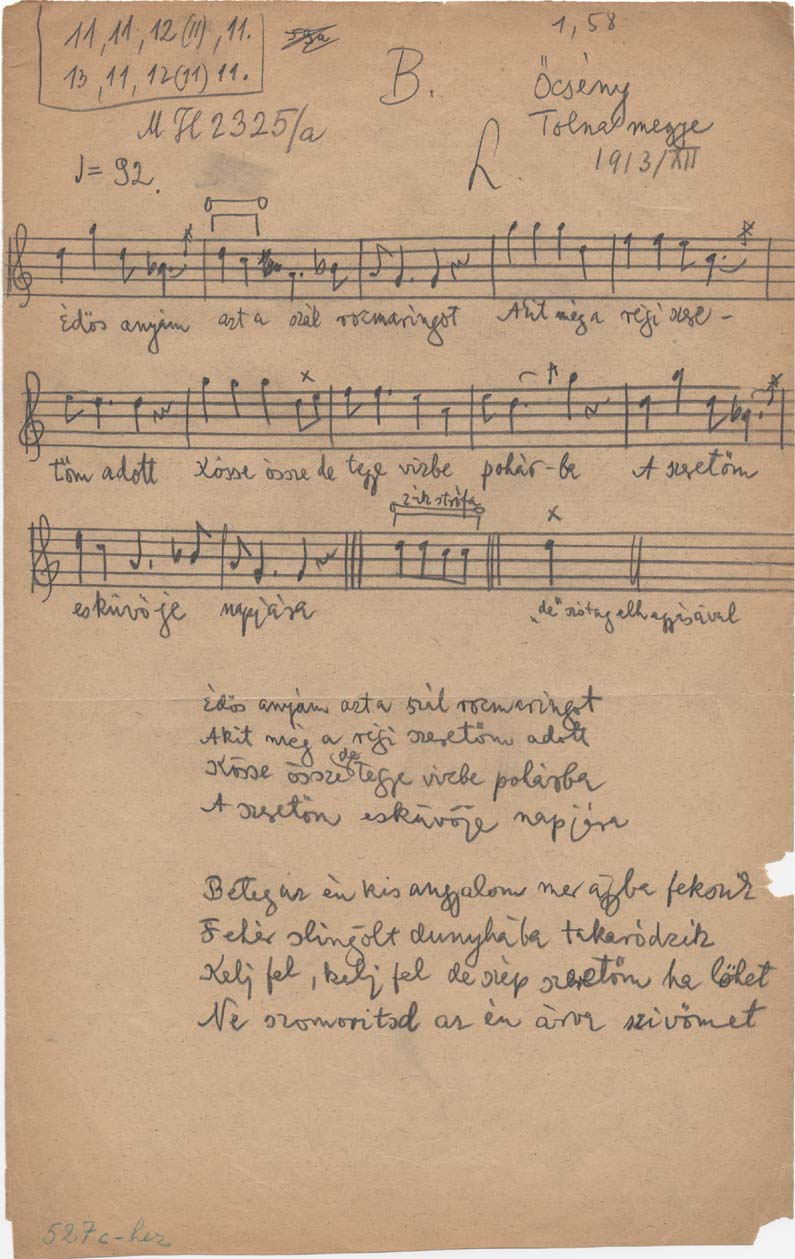 11, 11, 12 (11), 11.
13, 11, 12 (11) 11.
1, 58
B.
Őcsény
Tolna megye
1913/XII
MH 2325/a
L.
♩= 92.
Édös anyám azt a szál rozmaringot Akit még a régi szere-
töm adott Kösse össze de tegye vizbe pohár-ba A szeretőm
2ik strófa
esküvője napjára
„de" szótag elhagyásával
Édös anyám azt a szál rozmaringot
Akit még a régi szeretöm adott
Kösse össze de tegye vizbe pohárba
A szeretőm esküvője napjára
Beteg az én kis angyalom mer ágyba fekszik
Fehér slingölt dunyhába takaródzik
Kelj fel, kelj fel de szép szeretöm ha löhet
Ne szomoritsd az én árva szivömet
527c-hez